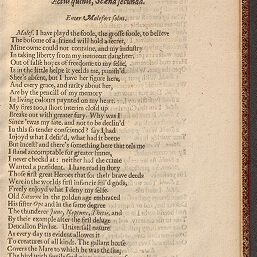 Actus quinti, Scæna secunda.
Enter Malefort solus.
Malef. I have playd the foole, the grosse foole, to believe
The bosome of a friend will hold a secret,
Mine owne could not containe, and my industry
In taking liberty from my innocent daughter,
Out of false hopes of freedome to my selfe,
Is in the little helpe it yeelds me, punish'd.
Shee's absent, but I have her figure here,
And every grace, and rarity about her,
Are by the pencill of my memory
In living colours paynted on my heart.
My fires too, a short interim clos'd up
Breake out with greater fury. Why was I
Since 'twas my fate, and not to be declin'd
In this so tender conscienc'd? say I had
Injoyd what I desir'd, what had it beene
But incest? and there's something here that tells me
I stand accomptable for greater sinnes,
I never checkd at: neither had the crime
Wanted a president. I have read in story
Those first great Heroes that for their brave deeds
Were in the worlds first infancie stil'd gods,
Freely enjoyd what I deny my selfe.
Old Saturne in the golden age embraced
His sister Ops and in the same degree
The thunderer Juno, Neptune, Thetis, and
By their example after the first deluge
Deucalion Pirrha. Universall nature
As every day tis evident allowes it
To creatures of all kinds. The gallant horse
Covers the Mare to which he was the sire,